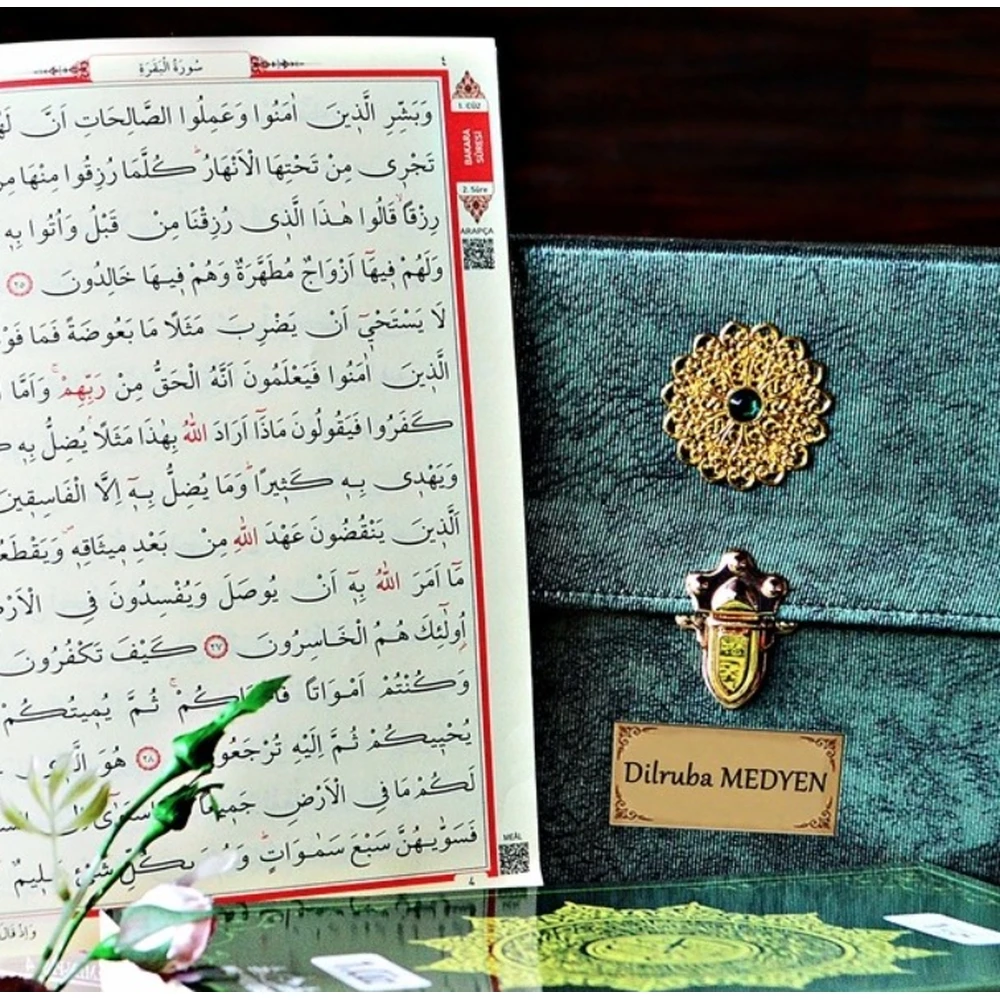 سُورَةُ الْبَقَرَةِ
٤
وَبَشِّرِ الَّذ۪ينَ اٰمَنُوا وَعَمِلُوا الصَّالِحَاتِ اَنَّ
تَجْر۪ي مِنْ تَحْتِهَا الْاَنْهَارُۜ كُلَّمَا رُزِقُوا مِنْهَا مِنْ
رِزْقًاۙ قَالُوا هٰذَا الَّذ۪ي رُزِقْنَا مِنْ قَبْلُ وَاُتُوا بِه۪
وَلَهُمْ ف۪يهَٓا اَزْوَاجٌ مُطَهَّرَةٌ وَهُمْ ف۪يهَا خَالِدُونَ ٢٥
لَا يَسْتَحْي۪ٓ اَنْ يَضْرِبَ مَثَلًا مَا بَعُوضَةً فَمَا
الَّذ۪ينَ اٰمَنُوا فَيَعْلَمُونَ اَنَّهُ الْحَقُّ مِنْ رَبِّهِمْۚ وَاَمَّا
كَفَرُوا فَيَقُولُونَ مَاذَٓا اَرَادَ اللّٰهُ بِهٰذَا مَثَلًاۢ يُضِلُّ بِه۪
وَيَهْد۪ي بِه۪ كَث۪يرًاۜ وَمَا يُضِلُّ بِه۪ٓ اِلَّا الْفَاسِق۪ينَ
اَلَّذ۪ينَ يَنْقُضُونَ عَهْدَ اللّٰهِ مِنْ بَعْدِ م۪يثَاقِه۪ۖ وَيَقْطَعُونَ
مَٓا اَمَرَ اللّٰهُ بِه۪ٓ اَنْ يُوصَلَ وَيُفْسِدُونَ فِي
اُو۬لٰٓئِكَ هُمُ الْخَاسِرُونَ ٢٧ كَيْفَ تَكْفُرُونَ
وَكُنْتُمْ اَمْوَاتًا فَاَحْيَاكُمْۚ ثُمَّ يُم۪يتُكُمْ
يُحْي۪يكُمْ ثُمَّ اِلَيْهِ تُرْجَعُونَ ٢٨ هُوَ الَّذ۪ي
لَكُمْ مَا فِي الْاَرْضِ جَم۪يعًا
فَسَوّٰيهُنَّ سَبْعَ سَمٰوَاتٍۜ وَهُوَ بِكُلِّ شَيْءٍ عَل۪يمٌ
٤
وَاِذْ قَالَ
1. CÜZ
BAKARA
SÛRESİ
2. Sûre
ARAPÇA
MEÂL
Dilruba MEDYEN